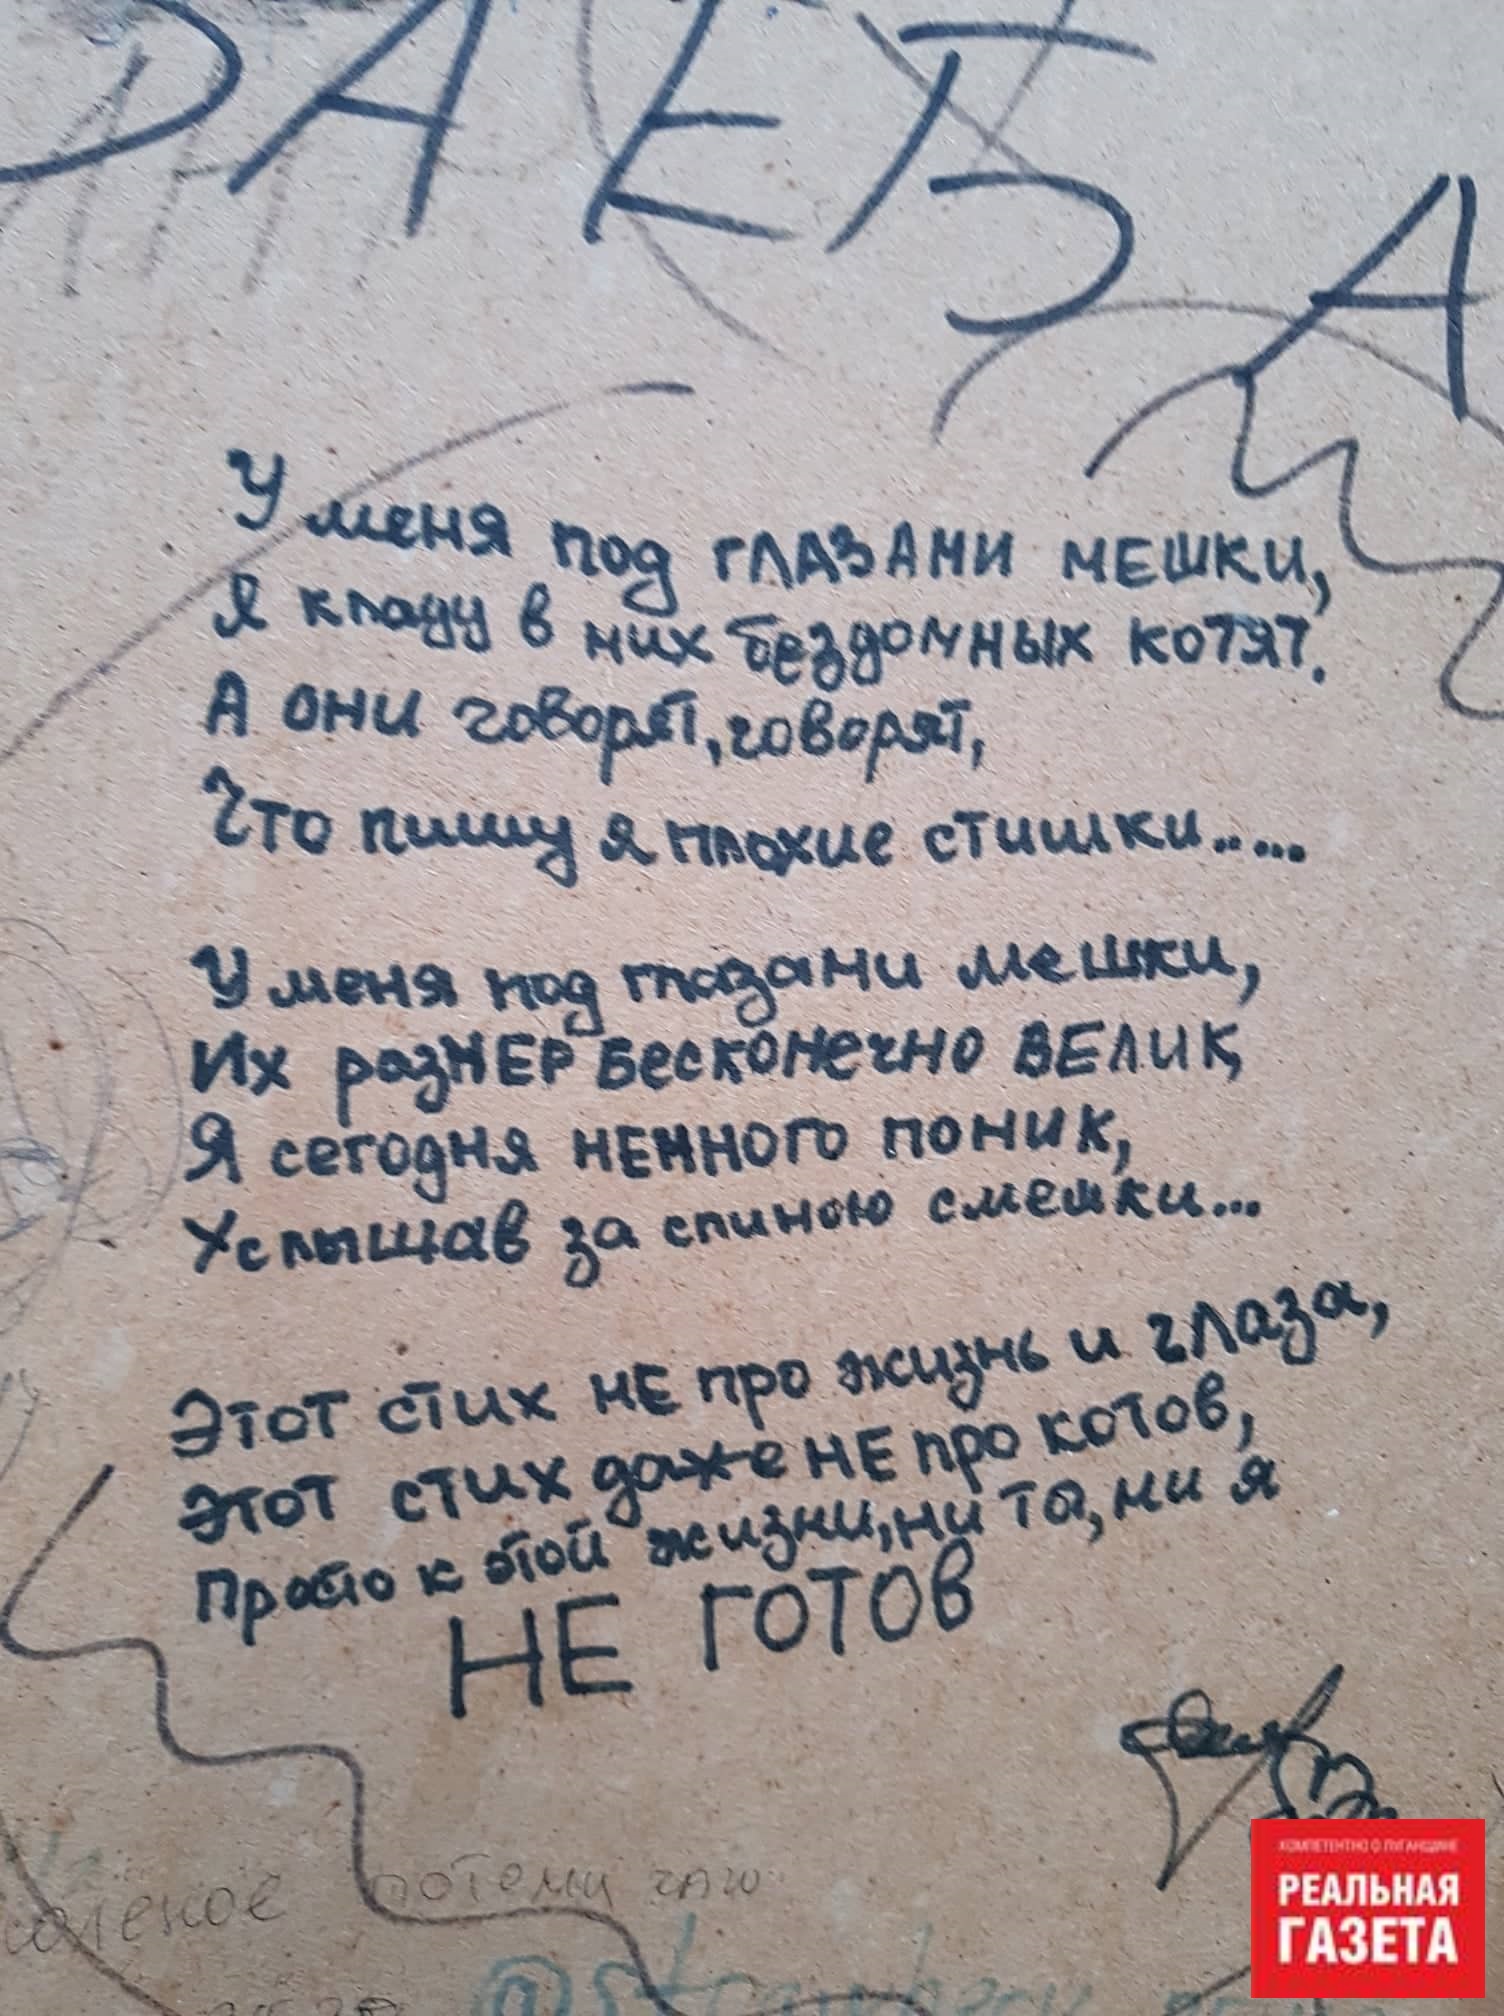 У меня под ГЛАЗАМИ МЕШКИ,
Я кладу в них бездомных котят.
А они говорят, говорят,
Что пишу я плохие стишки.....
У меня под глазами мешки,
Их разМЕР бесконечно ВЕЛИК,
Я сегодня немного поник,
Услышав за спиною смешки...
Этот стих НЕ про жизнь и глаза,
Этот стих даже НЕ про котов,
Просто к этой жизни, ни та, ни я
НЕ ГОТОВ
КОМПЕТЕНТНО О ЛУГАНЩИНЕ
РЕАЛЬНАЯ
ГАЗЕТА